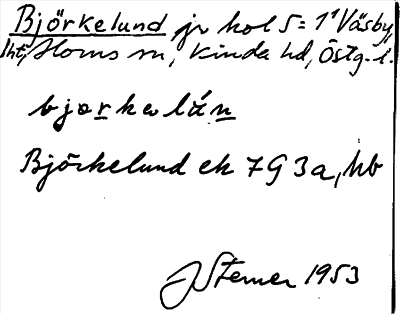 Björkelund jr kol 5=1¹ Väsby,
Horns sn, Kinda hd, Östg. l.
bjorkalún
Björkelund ek 7G3a, hb
J Sterner 1953